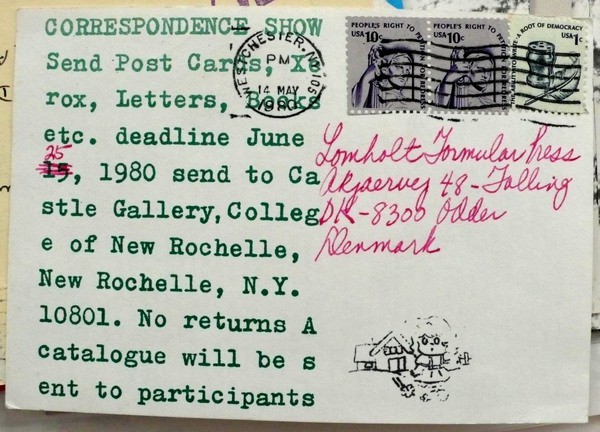 CORRESPONDENCE SHOW
Send Post Cards, Xe
rox, Letters, Books
etc. deadline June
25
15, 1980 send to Ca
stle Gallery, Colleg
e of New Rochelle,
New Rochelle, N.Y.
10801. No returns A
catalogue will be s
ent to participants
WESTCHESTER, NY 105
PM
14 MAY
1980
PEOPLE'S RIGHT TO PET
USA 10c
PEOPLE'S RIGHT TO PET
USA 10c
A ROOT OF DEMOCRACY
USA 1c
THE ABILITY TO WRITE
Lomholt Formular Press
Akjaervej 48 - Falling
DK-8300 Odder
Denmark